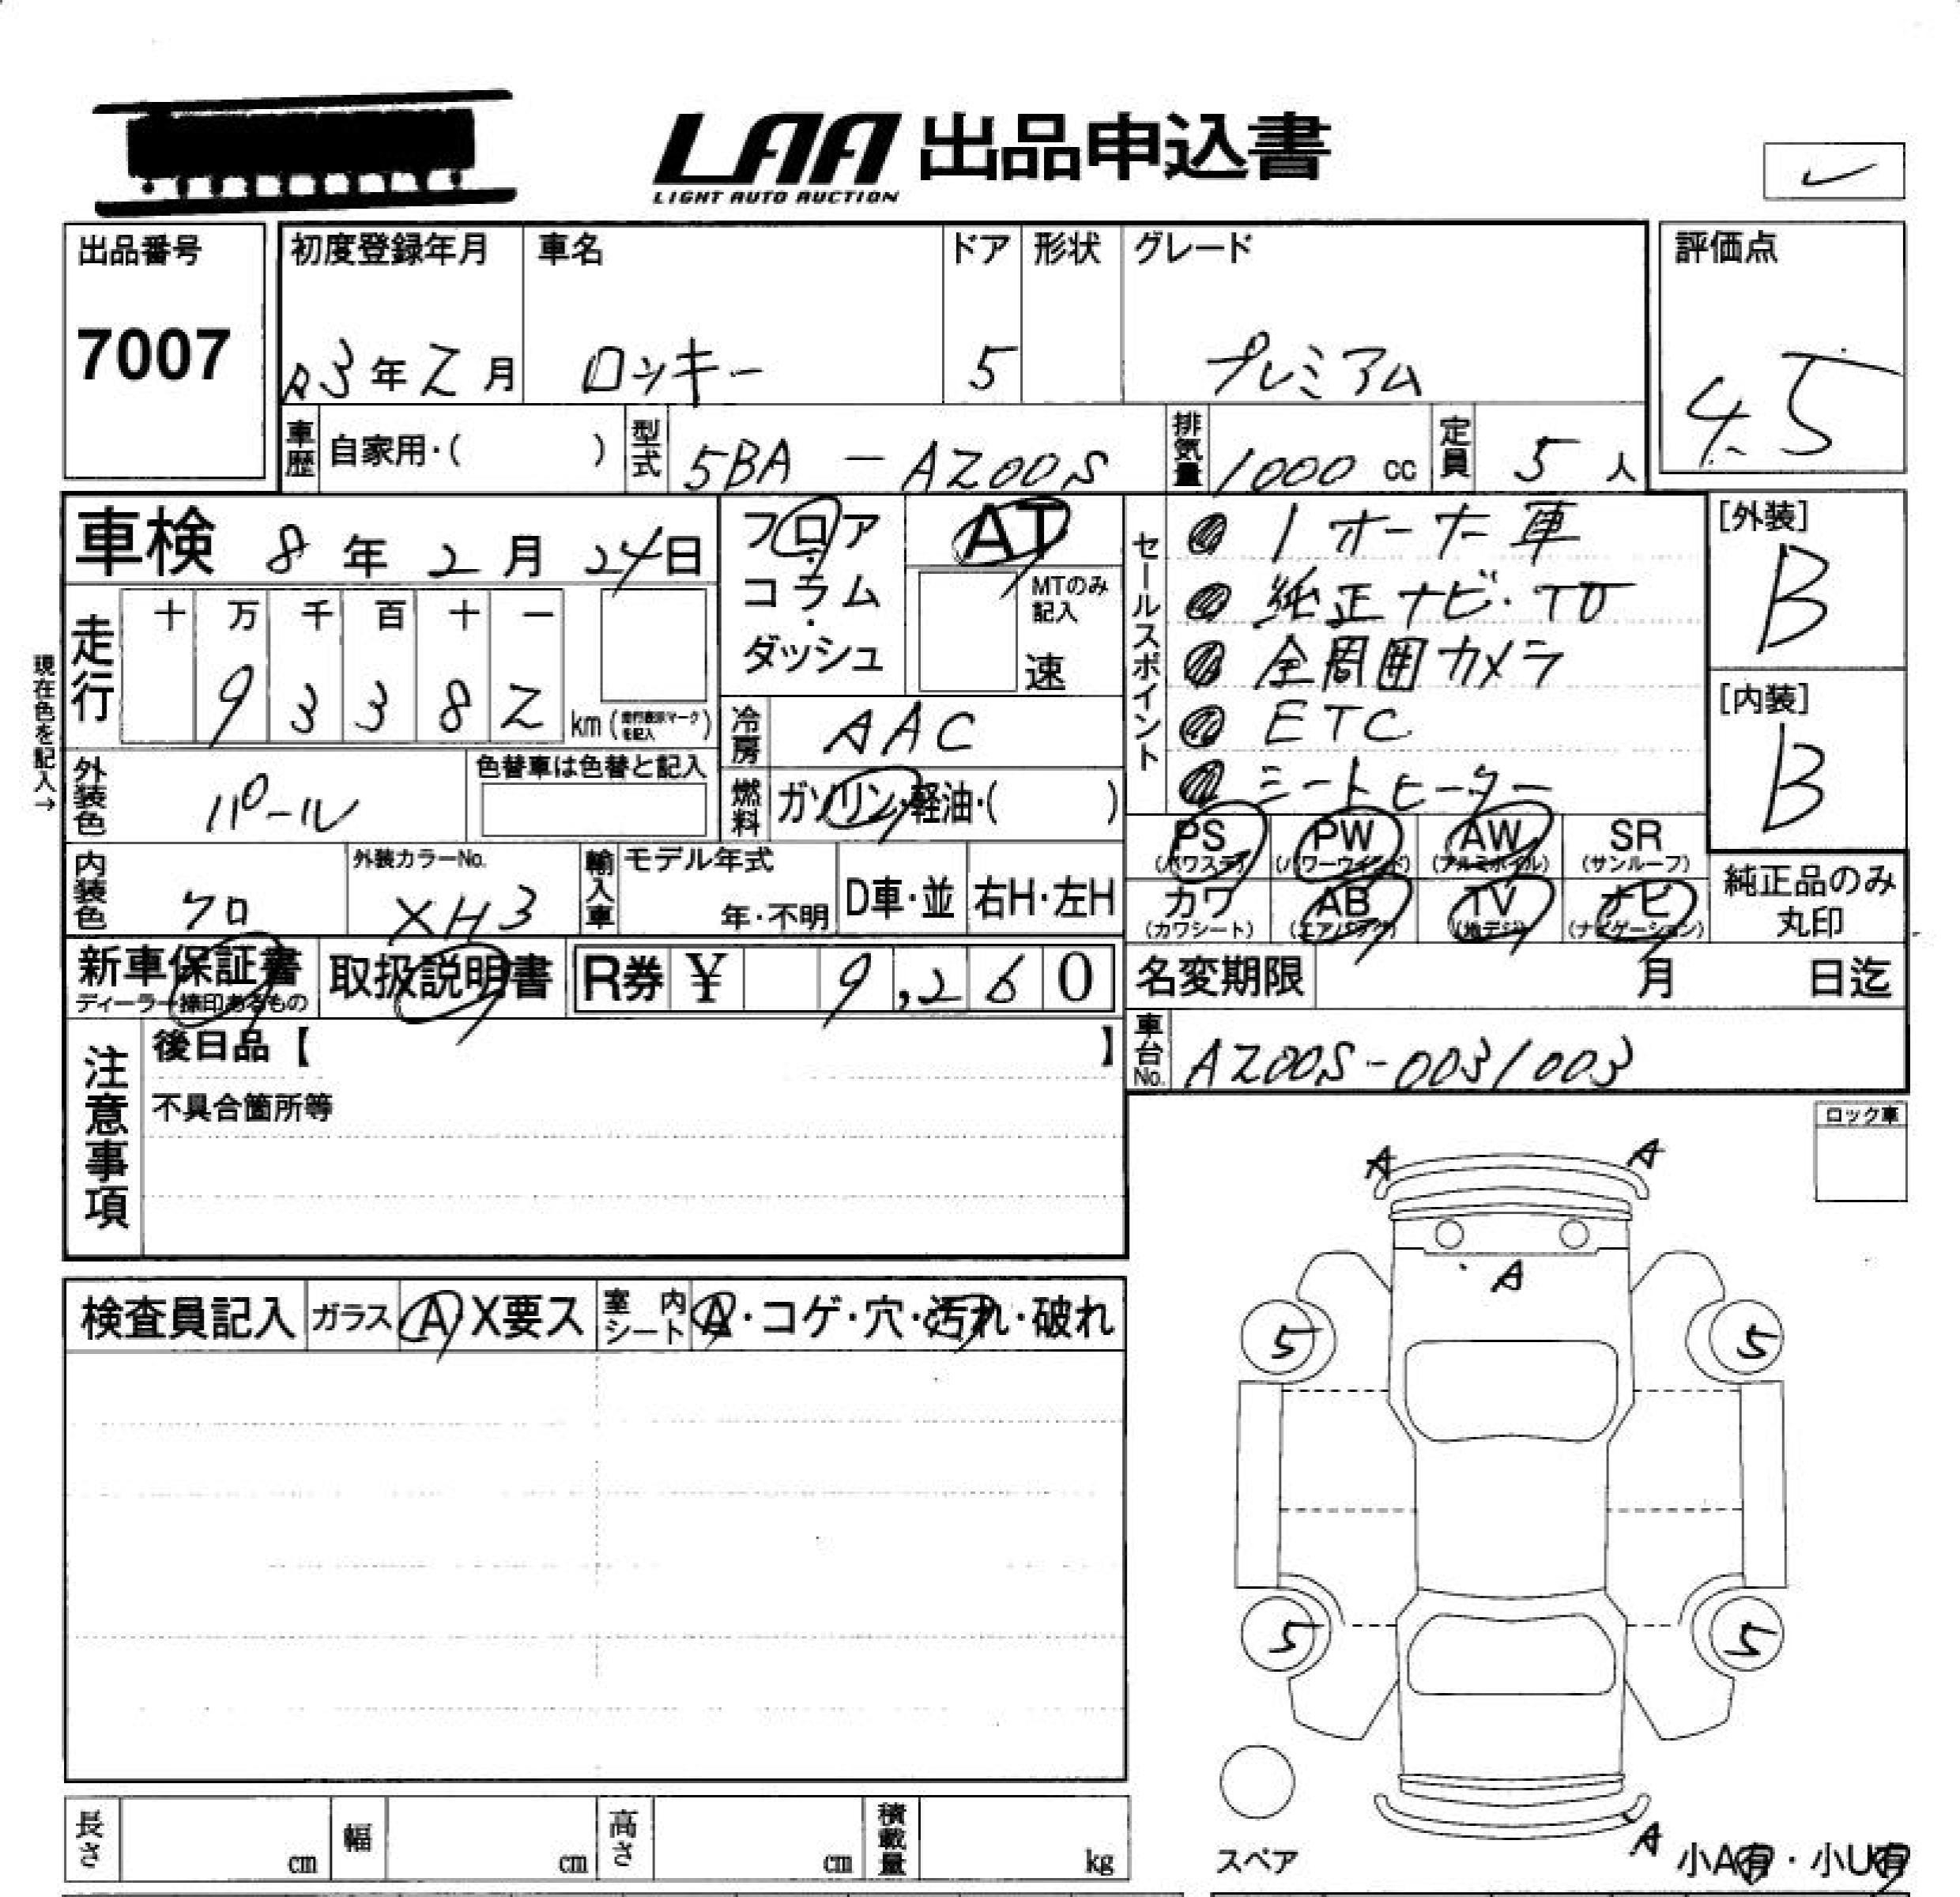 LAA 出品申込書
LIGHT AUTO AUCTION
出品番号
7007
初度登録年月 車名 ドア 形状 グレード
R3年2月 ロッキー 5 プレミアム
評価点
4.5
車歴 自家用・( ) 型式 5BA - A200S 排気量 1000 cc 定員 5 人
車検 8年2月24日
フロア・コラム・ダッシュ
AT
MTのみ記入
速
セールスポイント
1オーナー車
純正ナビ・TV
全周囲カメラ
ETC
シートヒーター
[外装]
B
[内装]
B
現在色を記入→
走行 十 万 千 百 十 一
9 3 3 8 2 km (走行表示マークを記入)
冷房 AAC
外装色 パール 色替車は色替と記入
燃料 ガソリン・軽油・( )
PS (パワステ) PW (パワーウィンド) AW (アルミホイル) SR (サンルーフ)
カワ (カワシート) AB (エアバッグ) TV (地デジ) ナビ (ナビゲーション)
純正品のみ丸印
内装色 クロ 外装カラーNo. XH3 輸入車 モデル年式 年・不明 D車・並 右H・左H
新車保証書 ディーラー捺印あるもの 取扱説明書 R券 ¥ 9,260
名変期限 月 日迄
車台No. A200S-0031003
注意事項
後日品【 】
不具合箇所等
ロック車
A A
A
5 5
5 5
検査員記入 ガラス A X要ス 室内シート A・コゲ・穴・汚れ・破れ
長さ cm 幅 cm 高さ cm 積載量 kg
スペア
A 小A有・小U有